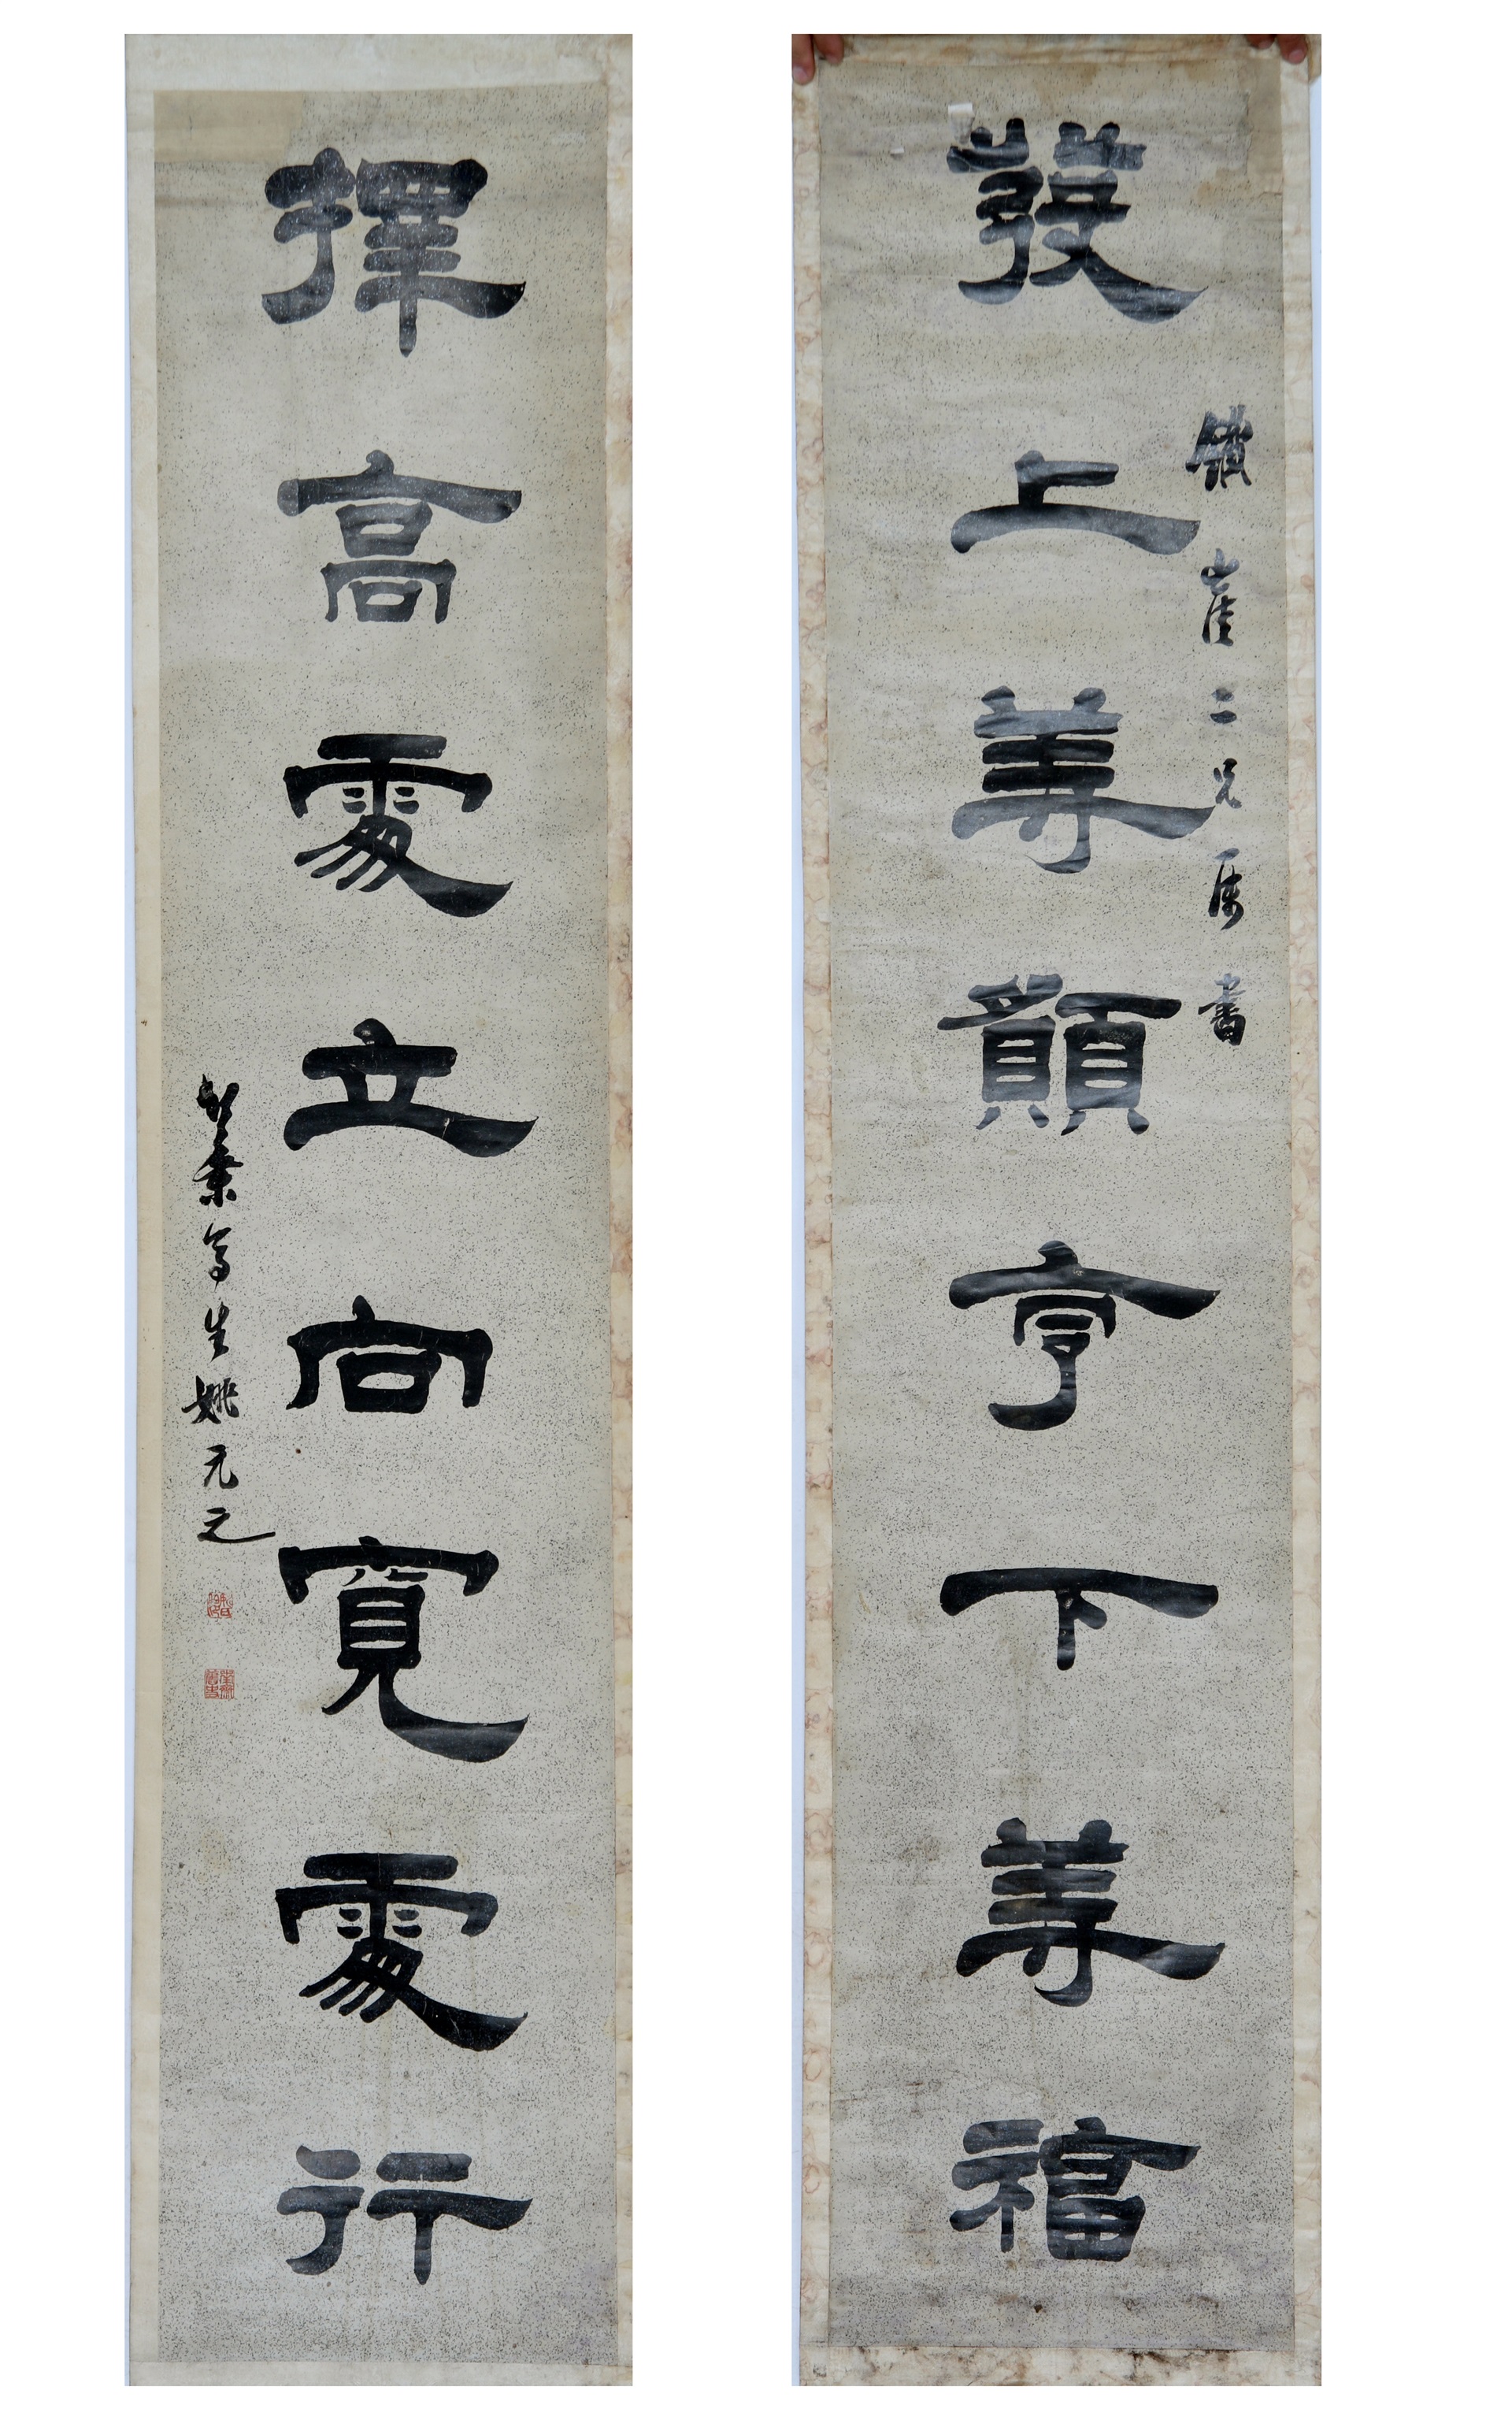 鐵崖二兄属書
發上等願享下等福
擇高處立向寬處行
竹葉亭生姚元之